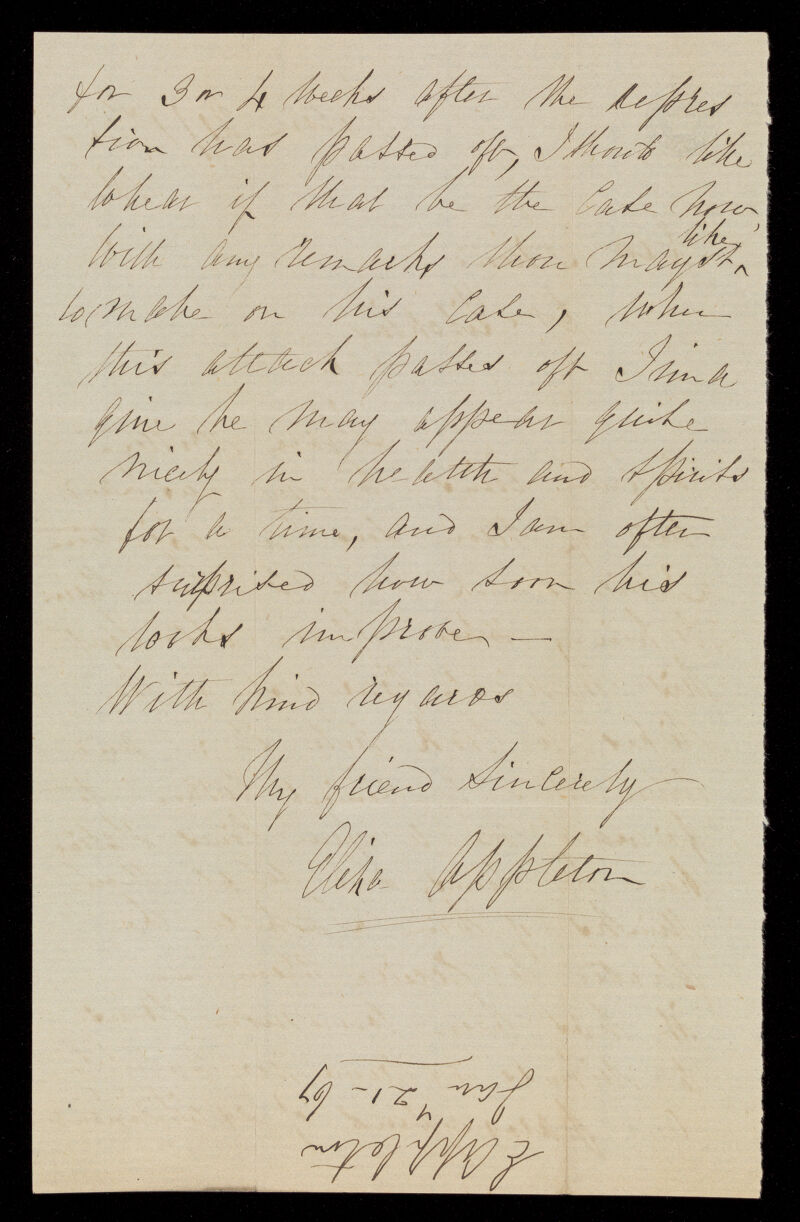 for 3 or 4 weeks after the depres
sion has passed off, I should like
to hear if that be the case now,
with any remarks thou mayst like
to make on his case, when
this attack passes off I ima
gine he may appear quite
nicely in health and spirits
for a time, and I am often
surprised how soon his
looks improve —
With kind regards
Thy friend sincerely
Eliza Appleton
E Appleton
Jan 21 - 67